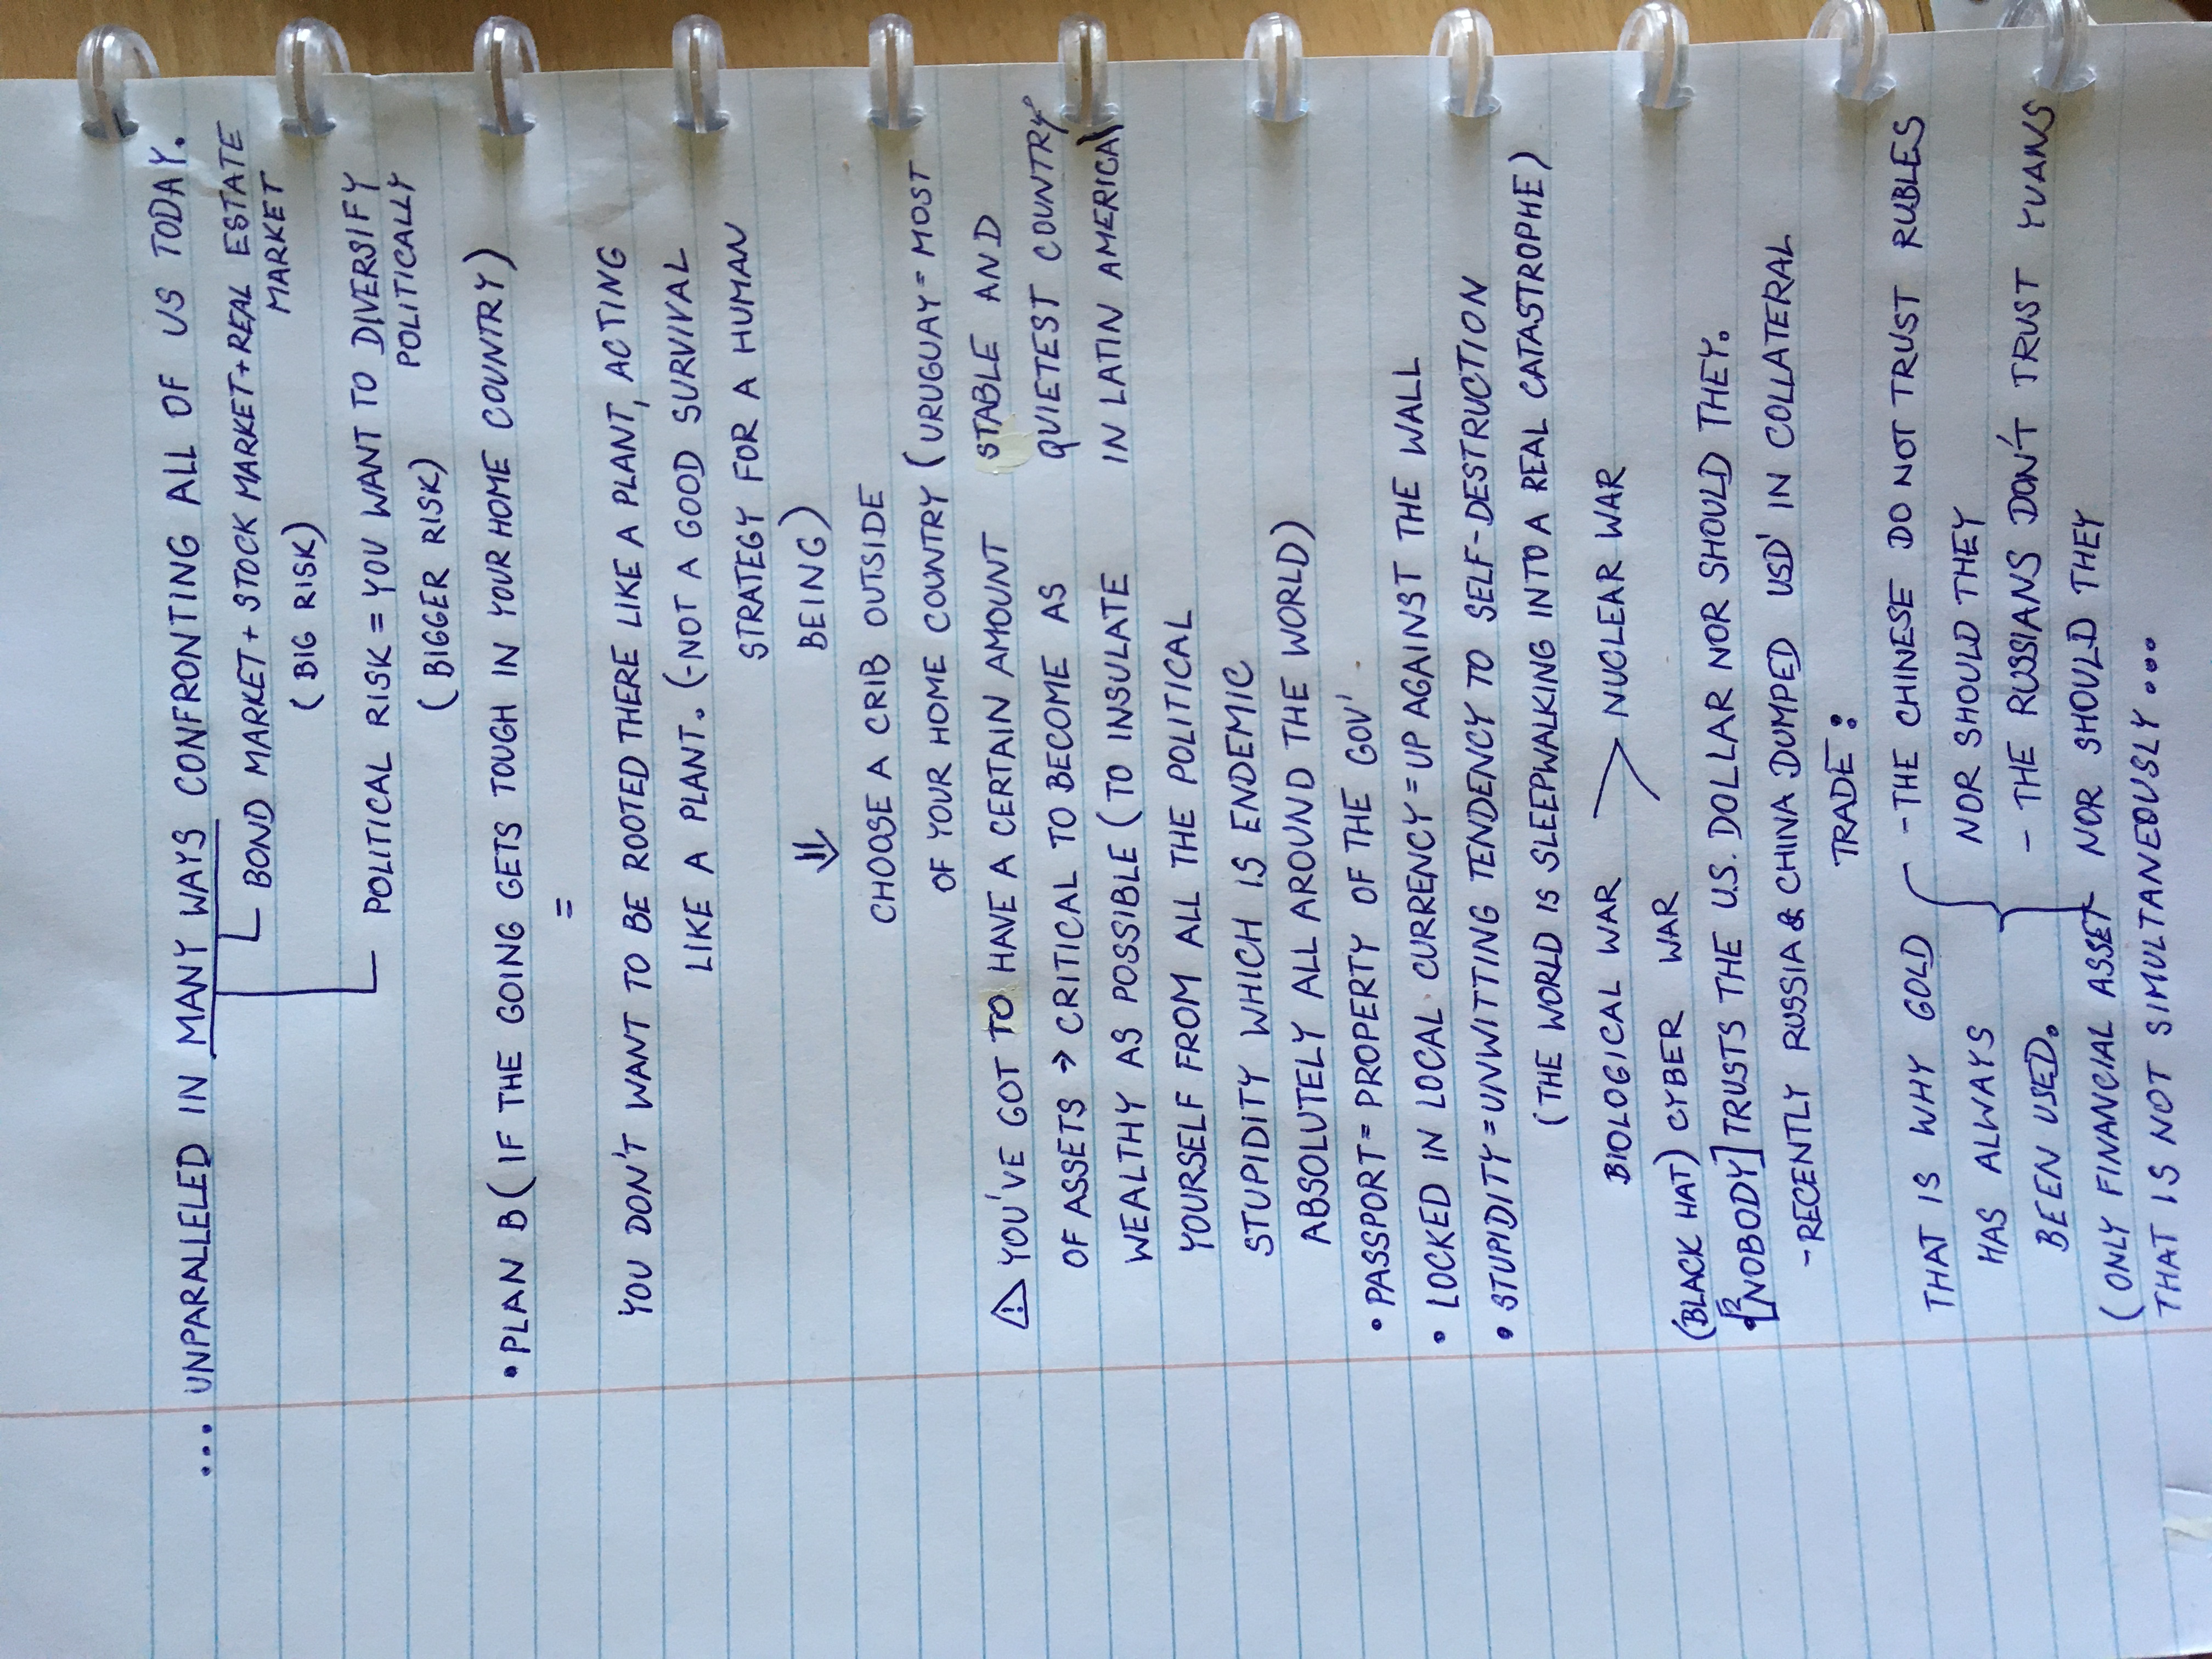 ... UNPARALLELED IN MANY WAYS CONFRONTING ALL OF US TODAY.
BOND MARKET + STOCK MARKET + REAL ESTATE
MARKET
(BIG RISK)
POLITICAL RISK = YOU WANT TO DIVERSIFY
POLITICALLY
(BIGGER RISK)
• PLAN B (IF THE GOING GETS TOUGH IN YOUR HOME COUNTRY)
=
YOU DON'T WANT TO BE ROOTED THERE LIKE A PLANT, ACTING
LIKE A PLANT. (-NOT A GOOD SURVIVAL
STRATEGY FOR A HUMAN
BEING)
⇓
CHOOSE A CRIB OUTSIDE
OF YOUR HOME COUNTRY (URUGUAY = MOST
STABLE AND
QUIETEST COUNTRY
IN LATIN AMERICA)
⚠ YOU'VE GOT TO HAVE A CERTAIN AMOUNT
OF ASSETS → CRITICAL TO BECOME AS
WEALTHY AS POSSIBLE (TO INSULATE
YOURSELF FROM ALL THE POLITICAL
STUPIDITY WHICH IS ENDEMIC
ABSOLUTELY ALL AROUND THE WORLD)
• PASSPORT = PROPERTY OF THE GOV'
• LOCKED IN LOCAL CURRENCY = UP AGAINST THE WALL
• STUPIDITY = UNWITTING TENDENCY TO SELF-DESTRUCTION
(THE WORLD IS SLEEPWALKING INTO A REAL CATASTROPHE)
BIOLOGICAL WAR > NUCLEAR WAR
(BLACK HAT) CYBER WAR
[NOBODY] TRUSTS THE U.S. DOLLAR NOR SHOULD THEY.
- RECENTLY RUSSIA & CHINA DUMPED USD' IN COLLATERAL
TRADE:
THAT IS WHY GOLD { - THE CHINESE DO NOT TRUST RUBLES
HAS ALWAYS NOR SHOULD THEY
BEEN USED. - THE RUSSIANS DON'T TRUST YUANS
(ONLY FINANCIAL ASSET NOR SHOULD THEY
THAT IS NOT SIMULTANEOUSLY ...